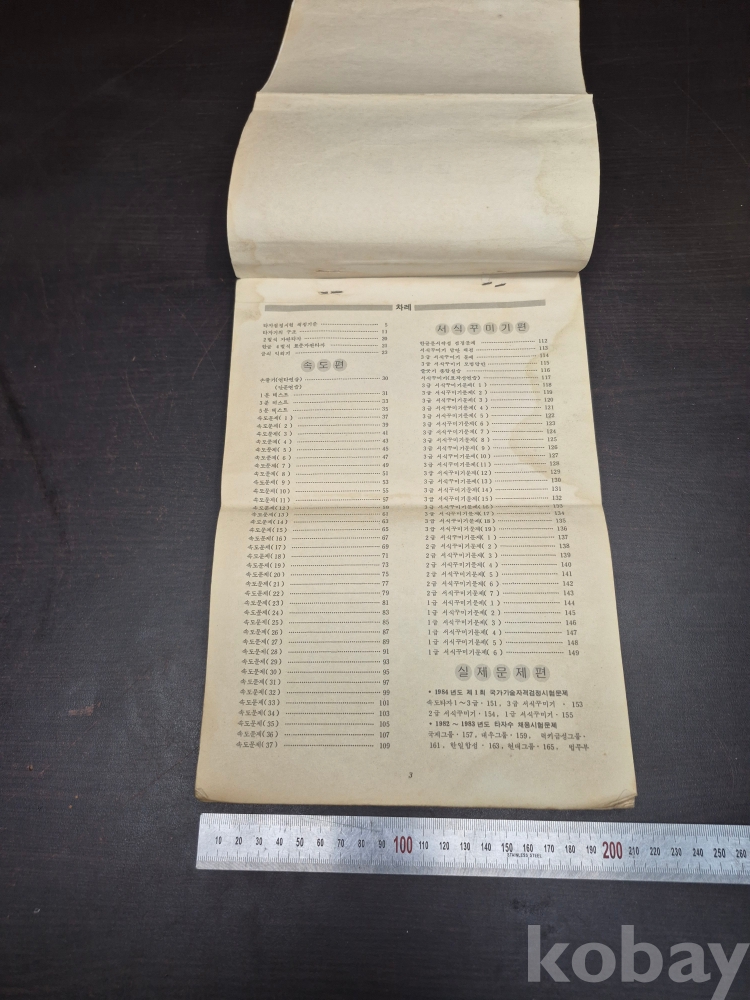 차례
타자검정시험 채점기준 5
타자기의 구조 11
2벌식 자판의치 20
한글 4벌식 표준자판타자
글쇠 익히기 23
속도편
손풀기(전타연습) 30
(단문연습)
1분 테스트 31
3분 테스트 33
5분 테스트 35
속도문제( 1 ) 37
속도문제( 2 ) 39
속도문제( 3 ) 41
속도문제( 4 ) 43
속도문제( 5 ) 45
속도문제( 6 ) 47
속도문제( 7 ) 49
속도문제( 8 ) 51
속도문제( 9 ) 53
속도문제(10) 55
속도문제(11) 57
속도문제(12) 59
속도문제(13) 61
속도문제(14) 63
속도문제(15) 65
속도문제(16) 67
속도문제(17) 69
속도문제(18) 71
속도문제(19) 73
속도문제(20) 75
속도문제(21) 77
속도문제(22) 79
속도문제(23) 81
속도문제(24) 83
속도문제(25) 85
속도문제(26) 87
속도문제(27) 89
속도문제(28) 91
속도문제(29) 93
속도문제(30) 95
속도문제(31) 97
속도문제(32) 99
속도문제(33) 101
속도문제(34) 103
속도문제(35) 105
속도문제(36) 107
속도문제(37) 109
서식꾸미기편
112
서식꾸미기 113
3급 서식꾸미기 114
3급 서식꾸미기 모범답안 115
116
서식꾸미기 117
3급 서식꾸미기문제( 1 ) 118
3급 서식꾸미기문제( 2 ) 119
3급 서식꾸미기문제( 3 ) 120
3급 서식꾸미기문제( 4 ) 121
3급 서식꾸미기문제( 5 ) 122
3급 서식꾸미기문제( 6 ) 123
3급 서식꾸미기문제( 7 ) 124
3급 서식꾸미기문제( 8 ) 125
3급 서식꾸미기문제( 9 ) 126
3급 서식꾸미기문제(10) 127
3급 서식꾸미기문제(11) 128
3급 서식꾸미기문제(12) 129
3급 서식꾸미기문제(13) 130
3급 서식꾸미기문제(14) 131
3급 서식꾸미기문제(15) 132
3급 서식꾸미기문제(16) 133
3급 서식꾸미기문제(17) 134
3급 서식꾸미기문제(18) 135
3급 서식꾸미기문제(19) 136
2급 서식꾸미기문제( 1 ) 137
2급 서식꾸미기문제( 2 ) 138
2급 서식꾸미기문제( 3 ) 139
2급 서식꾸미기문제( 4 ) 140
2급 서식꾸미기문제( 5 ) 141
2급 서식꾸미기문제( 6 ) 142
2급 서식꾸미기문제( 7 ) 143
1급 서식꾸미기문제( 1 ) 144
1급 서식꾸미기문제( 2 ) 145
1급 서식꾸미기문제( 3 ) 146
1급 서식꾸미기문제( 4 ) 147
1급 서식꾸미기문제( 5 ) 148
1급 서식꾸미기문제( 6 ) 149
실제문제편
• 1984년도 제1회 국가기술자격검정시험문제
속도타자 1~3급·151, 3급 서식꾸미기 · 153
2급 서식꾸미기·154, 1급 서식꾸미기·155
• 1982 ~ 1983년도 타자수 채용시험문제
국제그룹·157, 대우그룹·159, 럭키금성그룹·
161, 한일합섬·163, 현대그룹·165, 법무부
3
10 20 30 40 50 60 70 80 90 100 110 120 130 140 150 160 170 180 190 200 210 220 230 240 250 260
STAINLESS STEEL
kobay